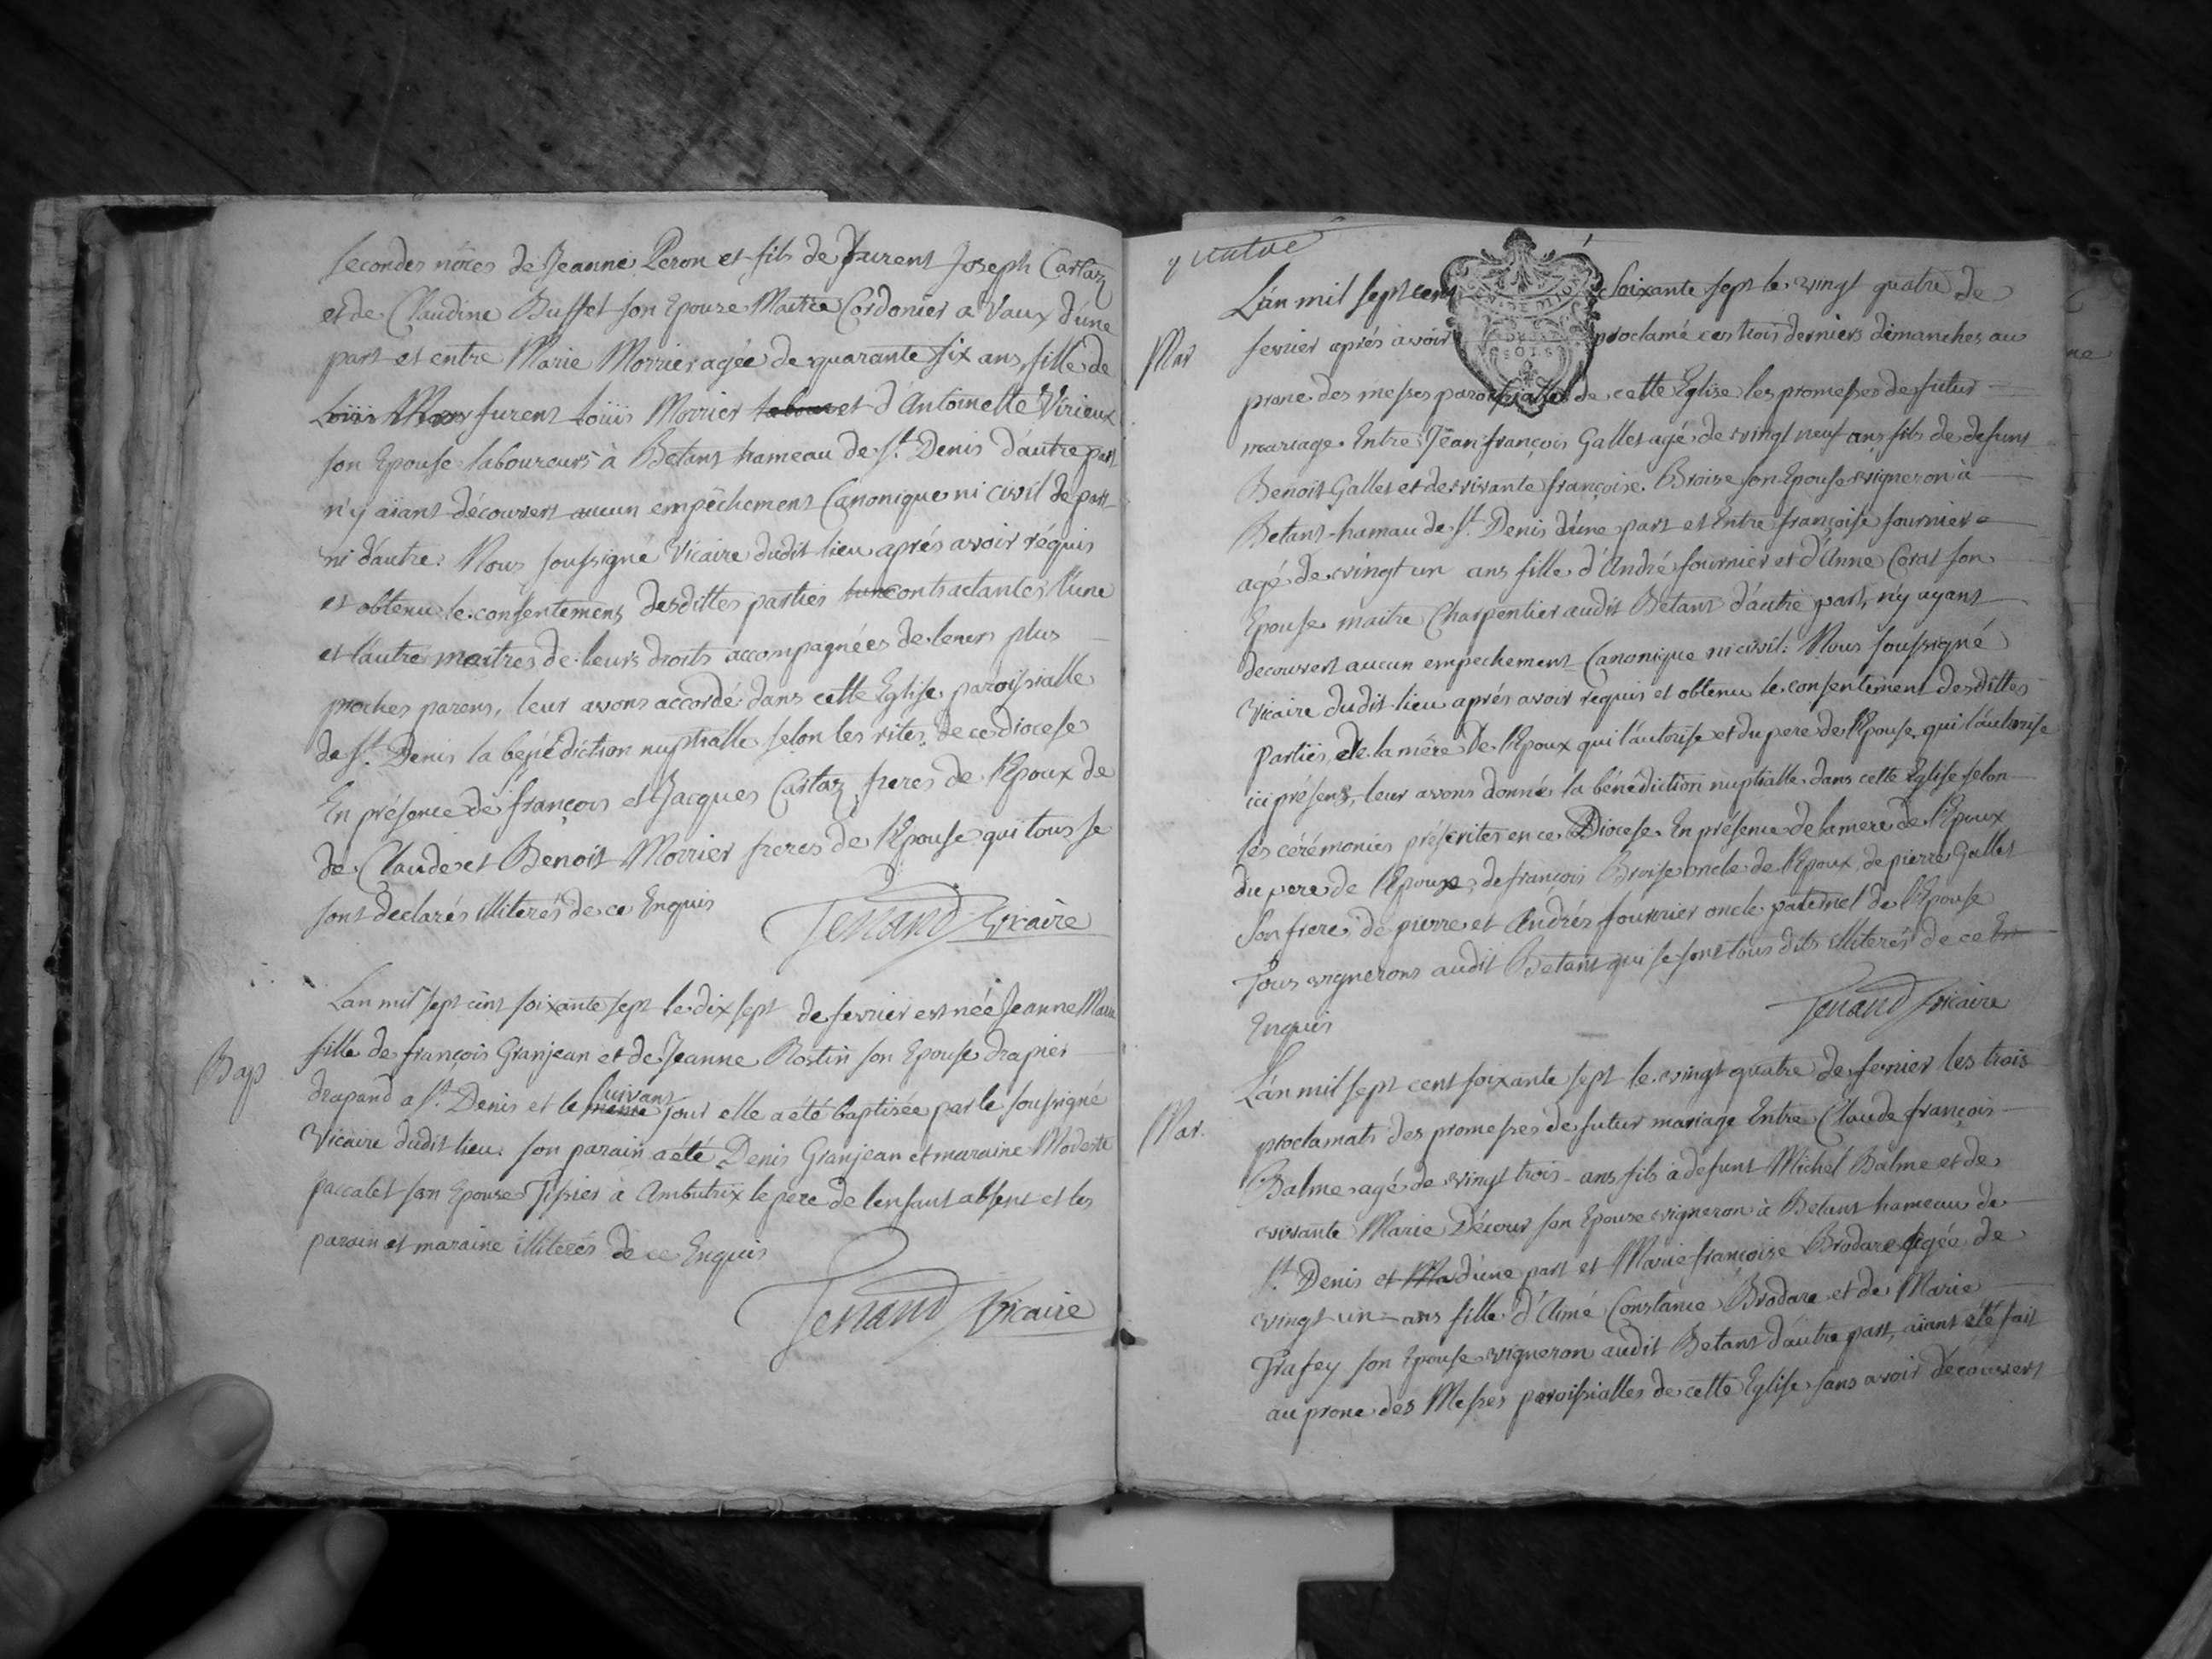 secondes nôces de Jeanne Peron et fils de furent Joseph Cartaz
et de Claudine Buffet son Epouse Maitre Cordonier a Vaux d'une
part et entre Marie Morrier agée de quarante six ans, fille de
Loüis Mor furent Loüis Morrier labour et d'Antoinette Virieux
son Epouse laboureurs à Betant hameau de St. Denis d'autre part
n'y aiant découvert aucun empêchement Canonique ni civil de part
ni d'autre. Nous soussigné Vicaire dudit lieu aprés avoir réquis
et obtenu le consentement desdittes parties contractantes l'une
et l'autre maitres de leurs droits accompagnées de leurs plus
proches parens, leur avons accordé dans cette Eglise paroissialle
de St. Denis la bénédiction nuptialle selon les rites de ce diocese
En présence de françois et Jacques Cartaz freres de l'Epoux de
de Claude et Benoit Morrier freres de l'Epouse qui tous se
sont declarés illiterés de ce Enquis
Tenand Vicaire
Lan mil sept cent soixante sept le dix sept de fevrier est née Jeanne Marie
Bap
fille de françois Granjean et de Jeanne Rostin son Epouse drapier
drapand a St. Denis et le même suivant jour elle a été baptisée par le soussigné
Vicaire dudit lieu. son parain a été Denis Granjean et maraine Modeste
paccalet son Epouse Tissier à Ambutrix le pere de l'enfant absent et les
parain et maraine illiterés de ce Enquis
Tenand Vicaire
quatre
L'an mil sept cent soixante sept le vingt quatre de
Mar
fevrier aprés avoir proclamé ces trois derniers dimanches au
prone des messes paroissialles de cette Eglise les promesses de futur
mariage. Entre Jean françois Gallet agé de vingt neuf ans fils de defunt
Benoit Gallet et de vivante françoise Broise son Epouse vigneron à
Betant hamau de St. Denis d'une part et Entre françoise fournier
agé de vingt un ans fille d'André fournier et d'Anne Corat son
Epouse maitre Charpentier audit Betant d'autre part, n'y ayant
decouvert aucun empechement Canonique ni civil. Nous soussigné
Vicaire dudit lieu aprés avoir requis et obtenu le consentement desdittes
Parties, de la mére de l'Epoux qui l'autorise et du pere de l'Epouse qui l'autorise
ici présens, leur avons donné la bénédiction nuptialle dans cette Eglise selon
les cérémonies préscrites en ce Diocese. En présence de la mere de l'Epoux
du pere de l'Epouse, de françois Broise oncle de l'Epoux, de pierre Gallet
son frere, de pierre et Andrés fournier oncle paternel de l'Epouse
Tous vignerons audit Betant qui se sont tous dits illiterés de ce En
Enquis
Tenand Vicaire
L'an mil sept cent soixante sept le vingt quatre de fevrier les trois
Mar.
proclamats des promesses de futur mariage Entre Claude françois
Balme agé de vingt trois ans fils à defunt Michel Balme et de
vivante Marie Décour son Epouse vigneron à Betant hameau de
St. Denis et Ma d'une part et Marie françoise Brodare agée de
vingt un ans fille d'Aimé Constance Brodare et de Marie
Trafey son Epouse vigneron audit Betant d'autre part, aiant été fait
au prone des Messes paroissialles de cette Eglise sans avoir découvert